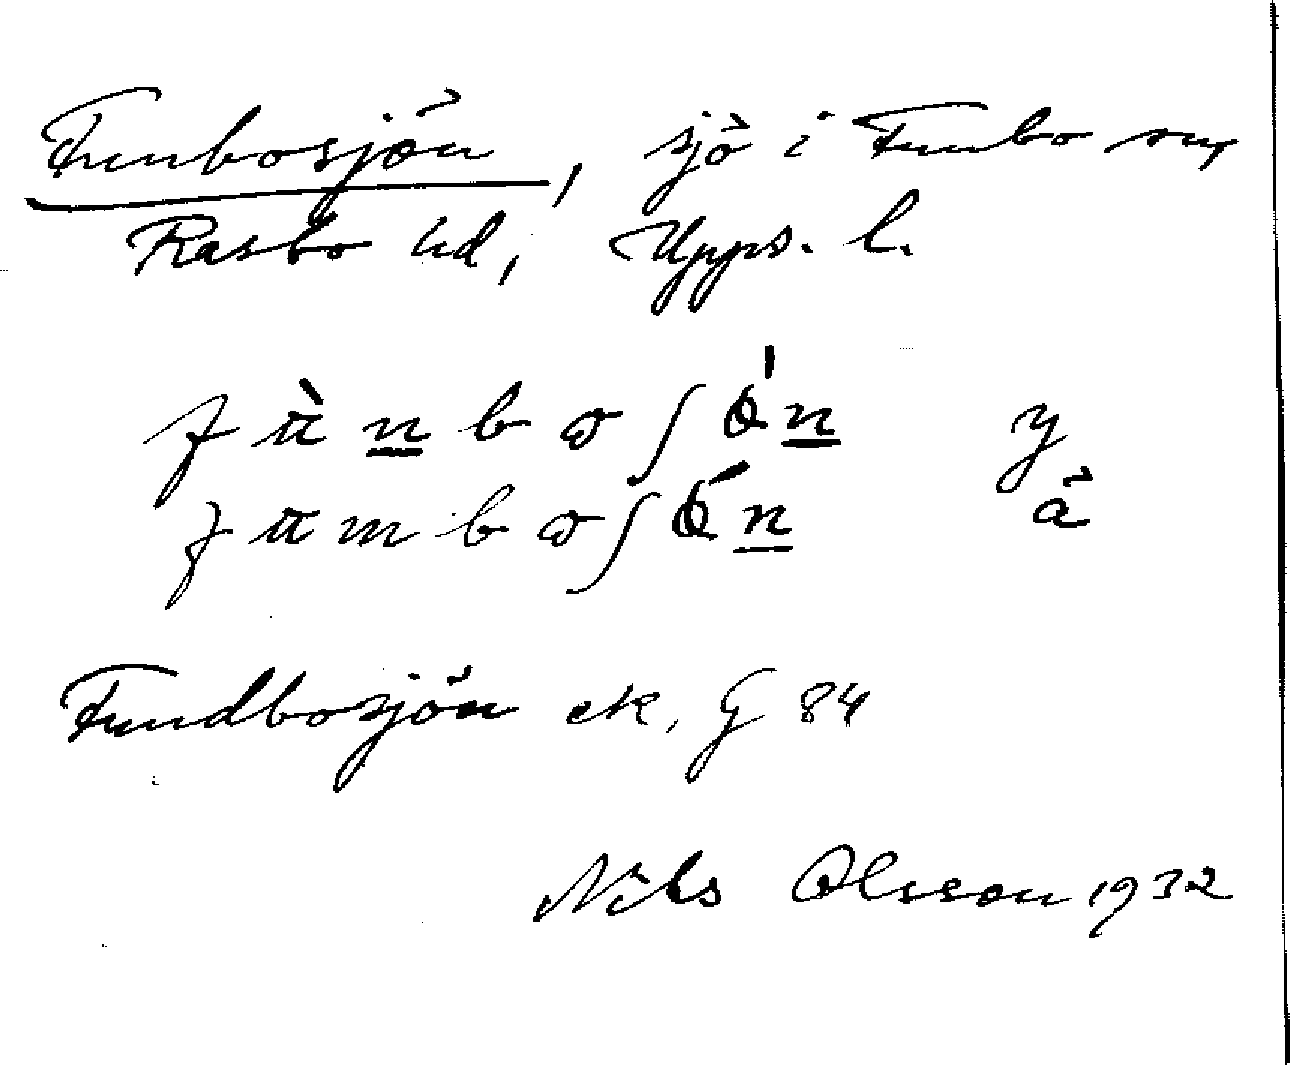 Funbosjön, sjö i Funbo sn,
Rasbo hd, Upps. l.
y
å
Fundbosjön ek. G 84
Nils Olsson 1932